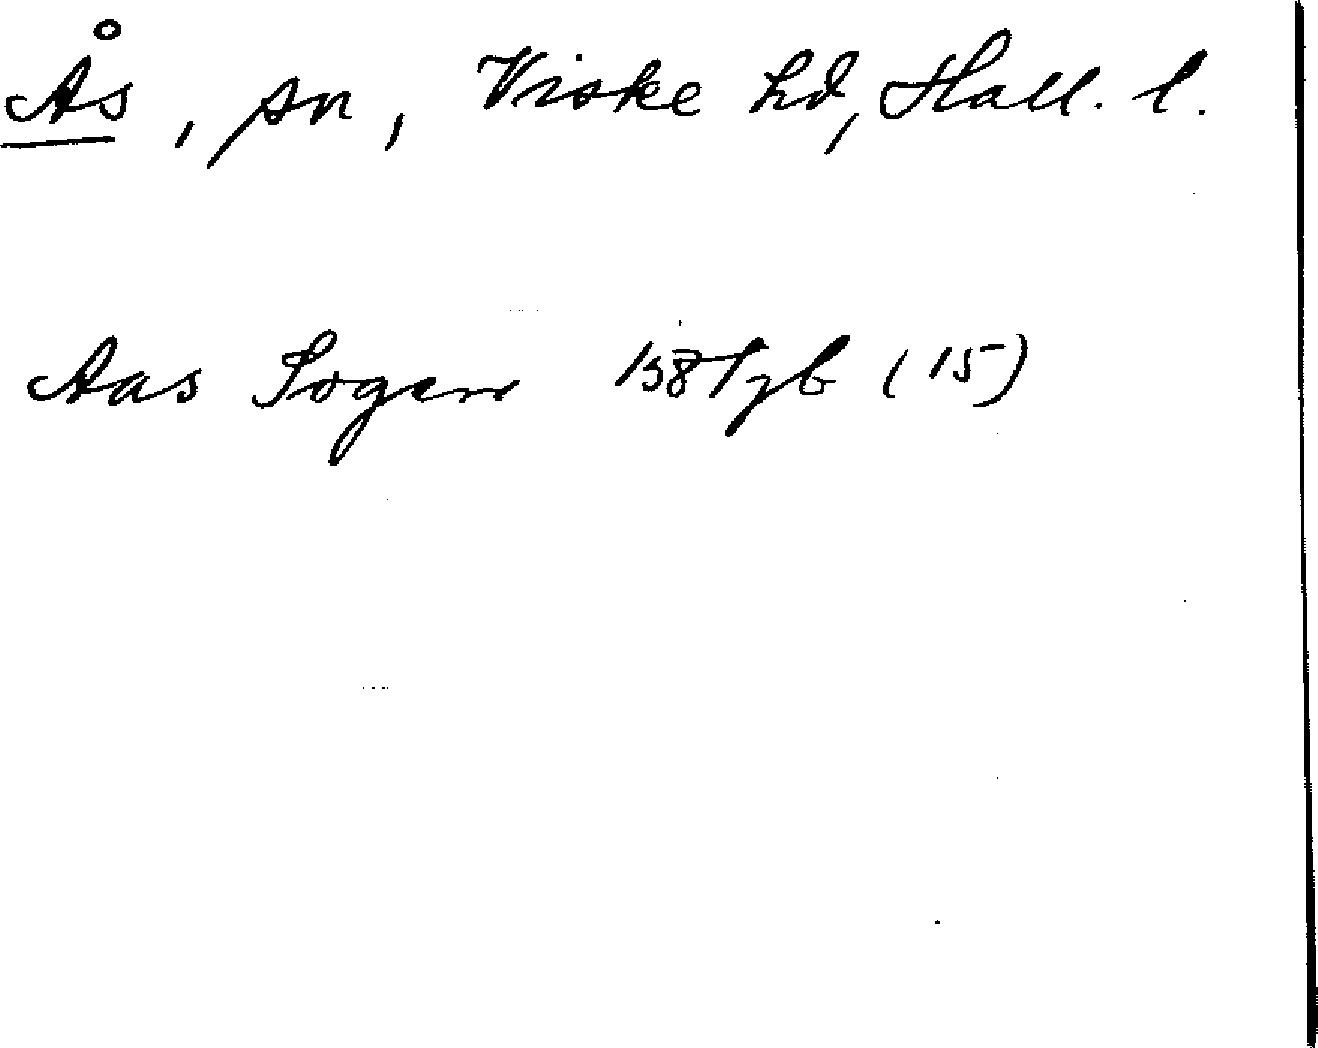 Ås, sn, Viske hd, Hall. l.
Aas Sogen 1581 jb (15)